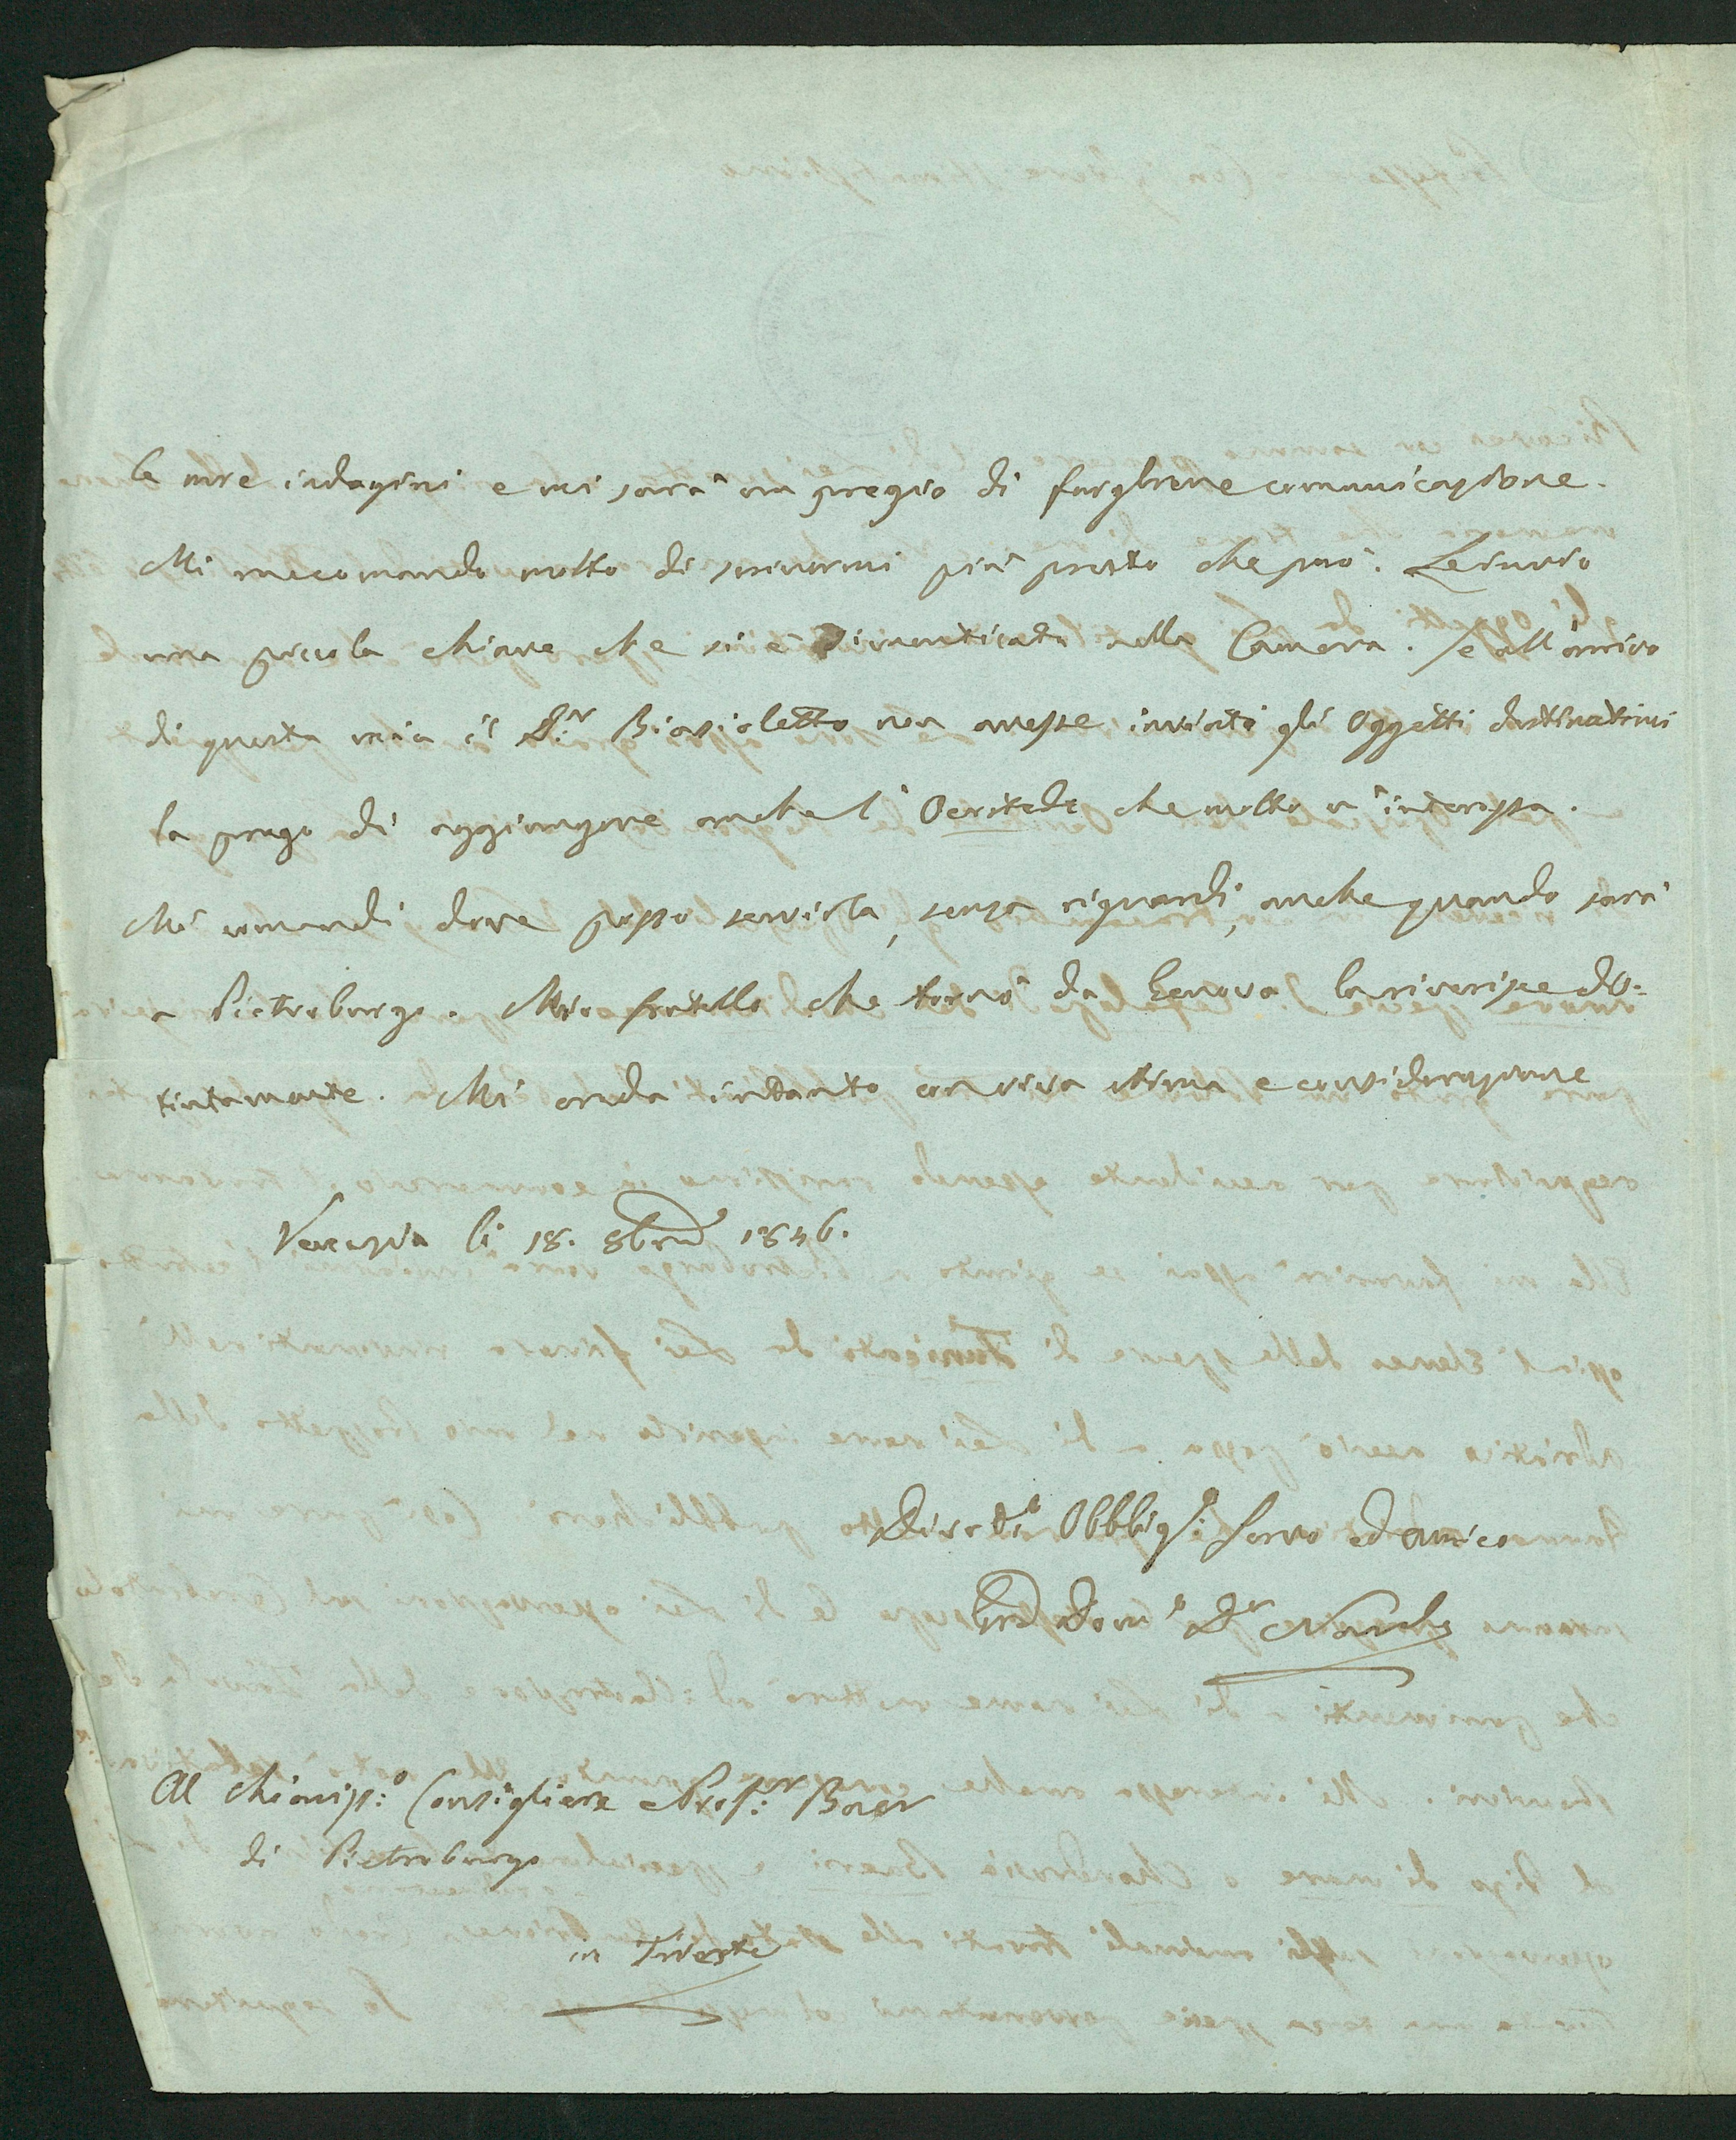 le mie indagini e mi sarà un pregio di fargliene comunicazione.
Mi raccomando molto di scrivermi più presto che può. Le invio
una piccola chiave che si è dimenticata nella Camera. Se all'arrivo
di questa mia il D.r Biasoletto non avesse inviati gli Oggetti destinatimi
la prego di aggiungere anche l' che molto m'interessa.
Mi comandi dove posso servirla, senza riguardi, anche quando sarà
a Pietroburgo. Mio fratello che tornò da Genova la riverisce dis-
tintamente. Mi creda intanto con viva stima e considerazione
Venezia li 18. 8bre 1846.
Obbligo Servo ed amico
Giov. Dom.o D.r Nardo
Al Chiariss:o Consigliere Prof:r Baer
di Pietroburgo
in Trieste